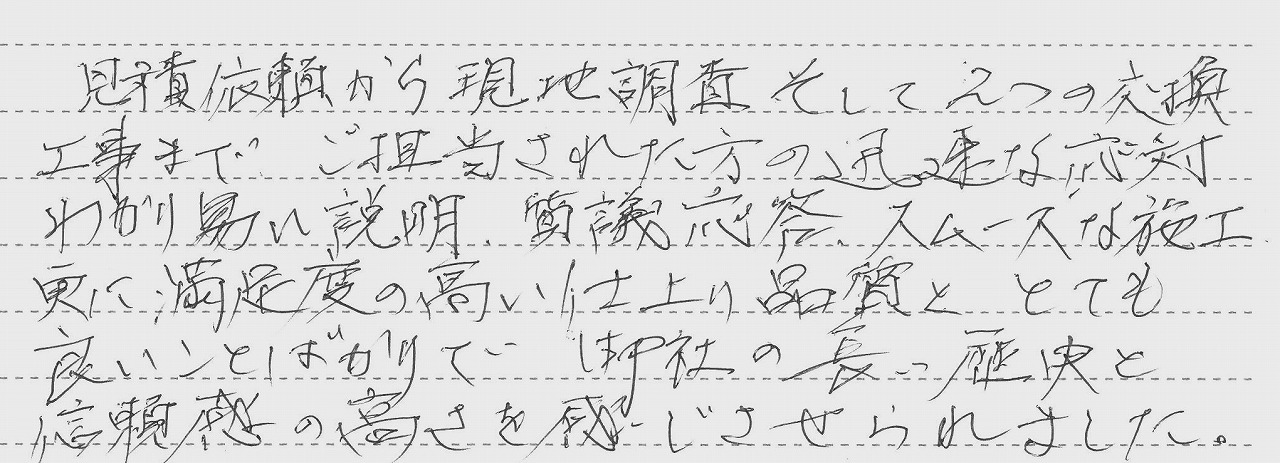 見積依頼から現地調査そして2つの交換
工事まで ご担当された方の迅速な応対
わかり易い説明、質議応答、スムースな施工
更に満足度の高い仕上り品質と とても
良いことばかりで 御社の長い歴史と
信頼感の高さを感じさせられました。